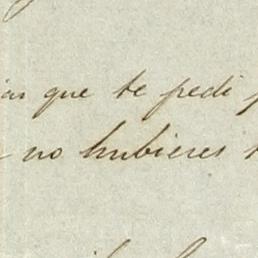 que te pedi
no hubieres